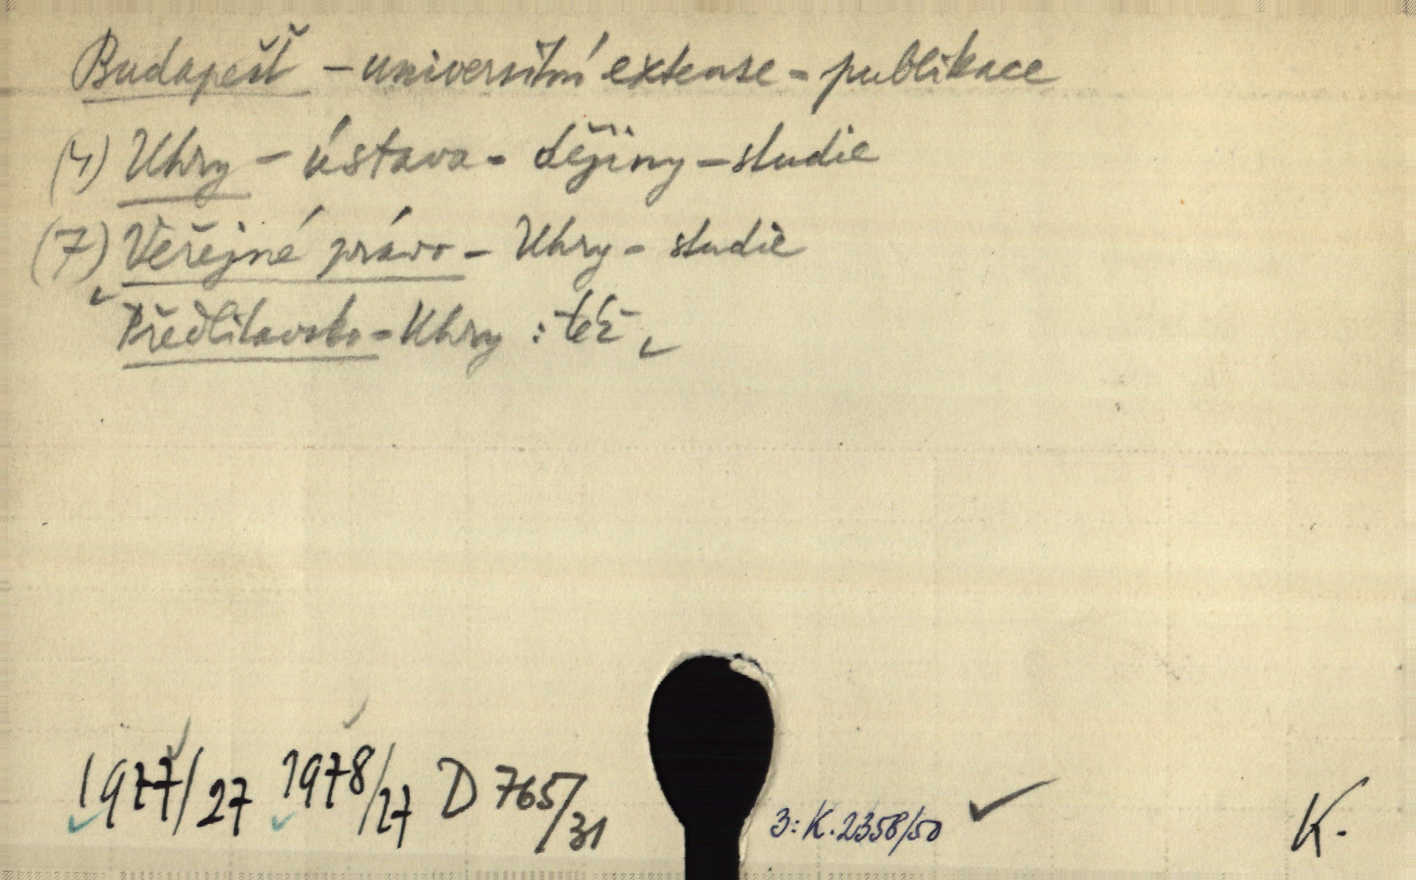 Budapešť - universitní extense - publikace
(4) Uhry - ústava - dějiny - studie
(7) Veřejné právo - Uhry - studie
Předlitavsko - Uhry : též
1977/27 1978/27 D 765/31 3: K. 2358/50 K.